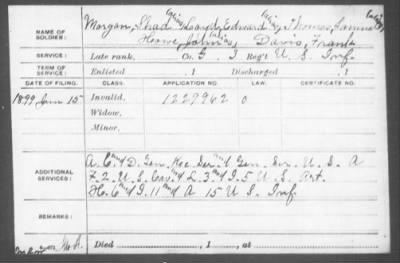 NAME OF SOLDIER:
Morgan, Shad alias Edward alias Thomas, Samuel alias
Howe, John alias Davis, Frank
SERVICE:
Late rank, Co. G 3 Reg't U. S. Inf.
TERM OF SERVICE:
Enlisted , 1 Discharged , 1
DATE OF FILING. CLASS. APPLICATION NO. LAW. CERTIFICATE NO.
1899 Jan 15 Invalid, 1229962 0
Widow,
Minor,
ADDITIONAL SERVICES:
A. C. and D. Gen. Rec. Ser. and Gen. Ser. U. S. A
F. 2. U. S. Cav and L. 3 and I. 5 U. S. Art.
H. 6 and I. 11 and A 15 U S. Inf.
REMARKS:
Died , 1 , at